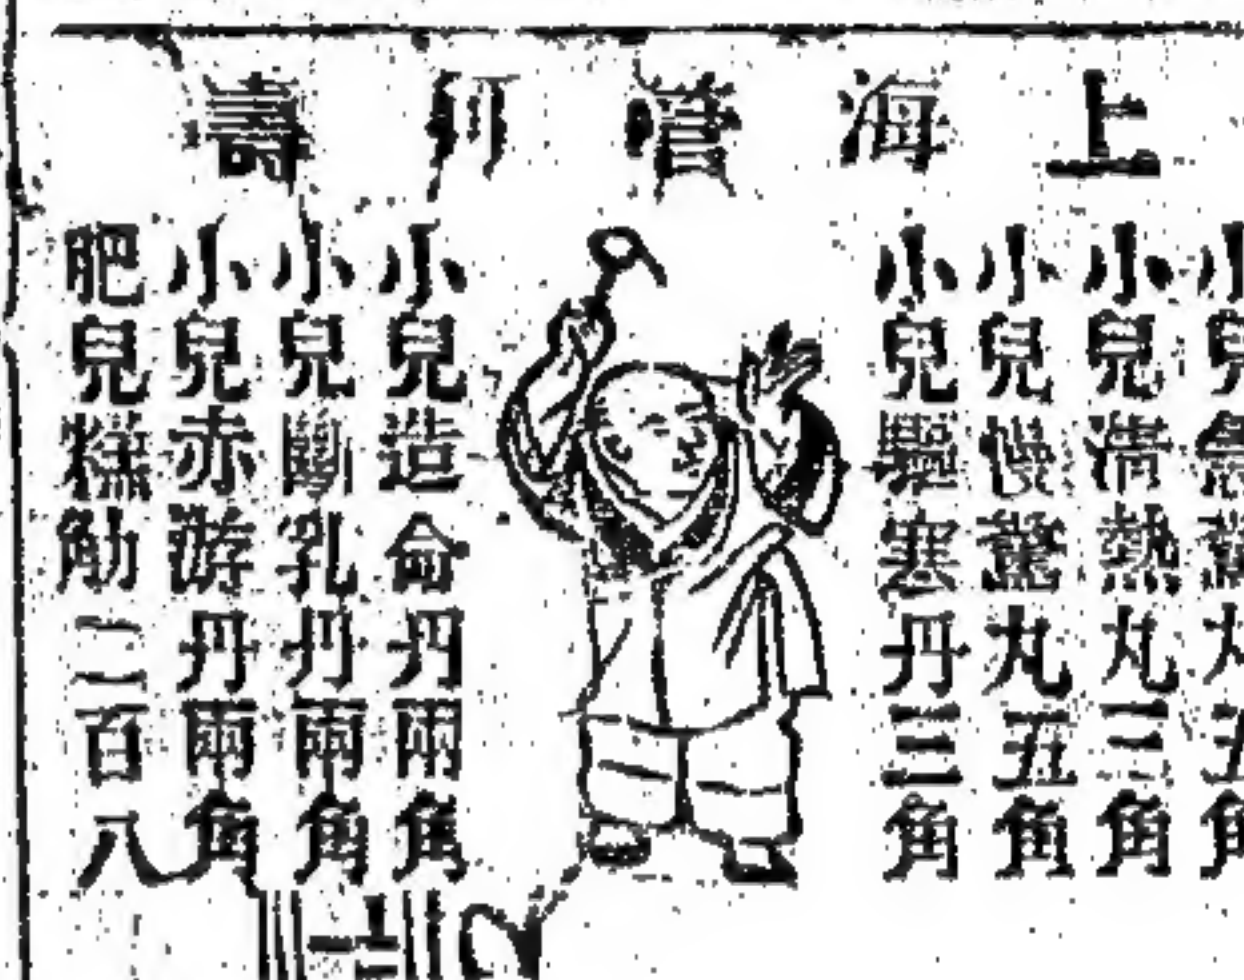 上海噹叮壽
小兒急驚丸五角
小兒清熱丸三角
小兒慢驚丸五角
小兒驅寒丹三角
小兒造命丹兩角
小兒斷乳丹兩角
小兒赤游丹兩角
肥兒糕觔二百八